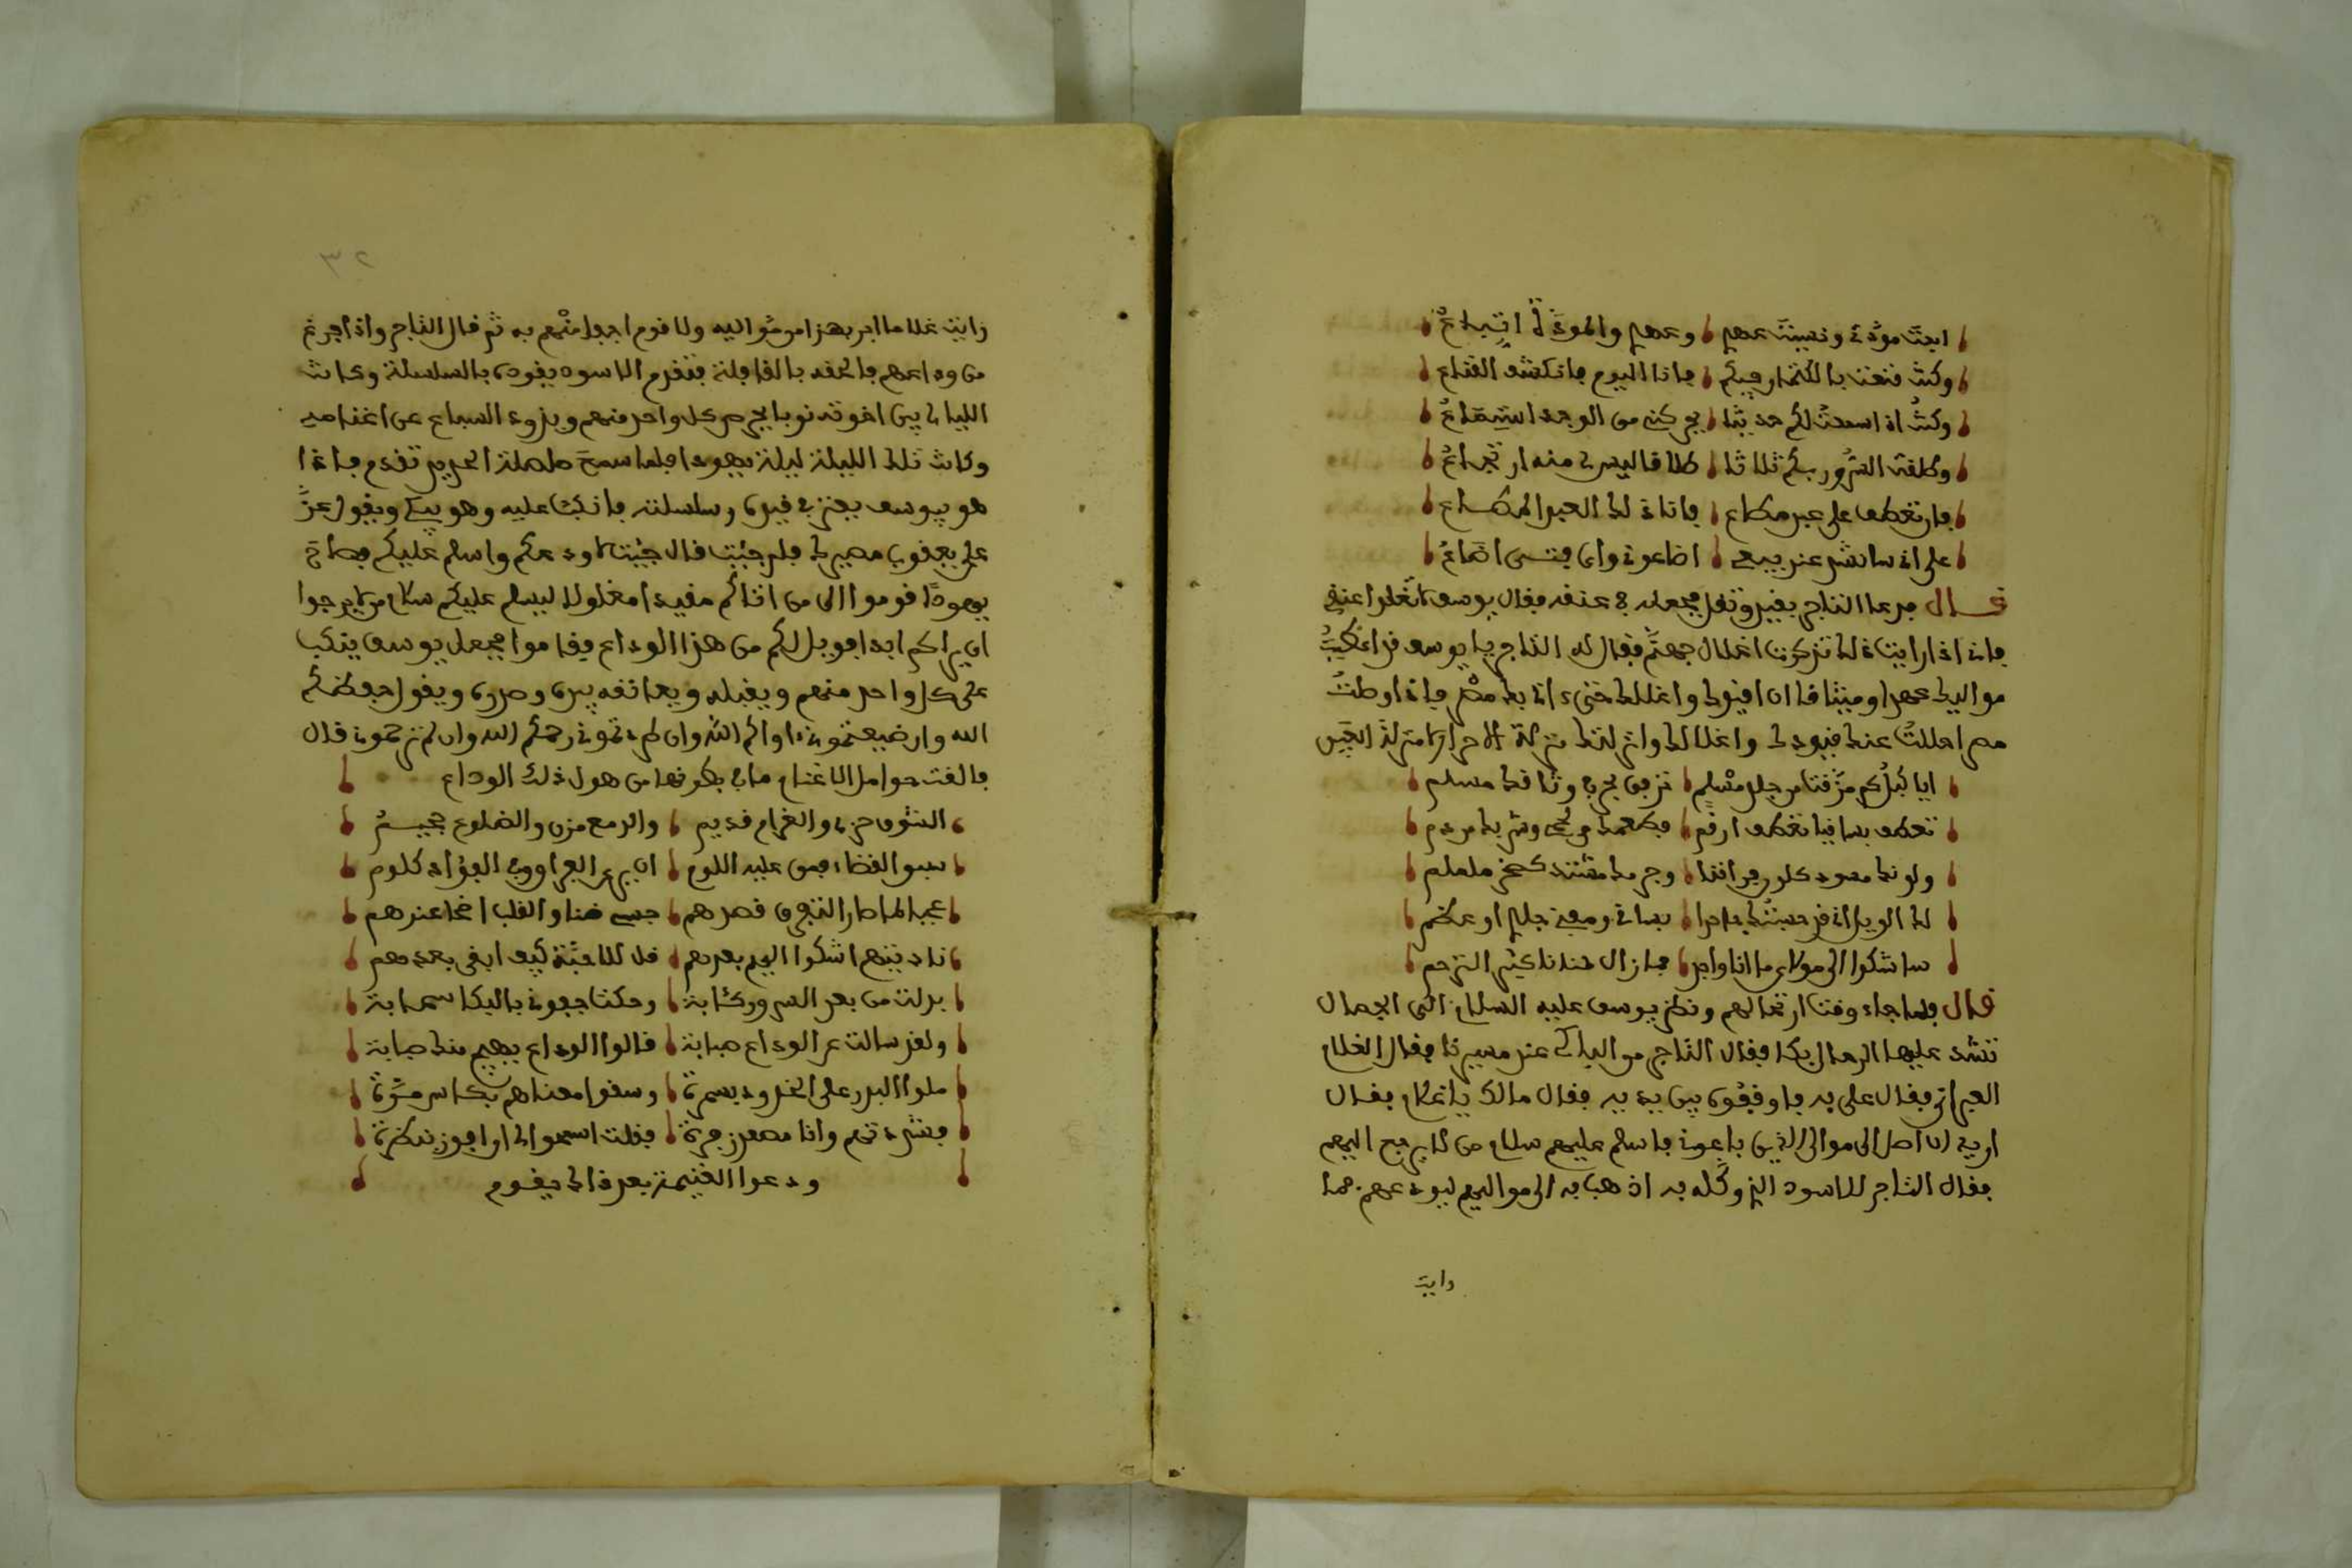 ابحت مودة ونسيت عهد وعهد والمودة لا تباع
وكنت قنعت بالكتمان حبكم فانا اليوم فانكشف القناع
وكنت اذا سمعت لكم حديثا يحركني من الوجد استماع
وطلقت السرور بكم ثلاثا طلاقا ليس لي منه ارتجاع
فان تعطف على عبد مطاع فاناذلك العبد المطاع
على اني سانشد عند بيعي اضاعوني واي فتى اضاعوا
قال فدعا التاجر بقيد وغل فجعله في عنقه فقال يوسف لا تغلوا عنقي
فاني اذا رايت ذلك تذكرت اغلال جهنم فقال له التاجر يا يوسف قد اعطيت
مواليك عهدا وميثاقا ان اقيدك واغلك حتى اتى بك مصر فاذا وصلت
مصر احللت عنك قيودك واغلالك وانزلتك منزلة الاحرار لا منزلة العبيد
ايا كبل كم مزقت من جلد مسلم ترفق بحر في وثاقك مسلم
تعطف بساقينا تعطف ارقم فطعمك من لحمي وشربك من دم
ولونك مسود كلون فراقنا وجرمك مشتد كصخر ململم
لك الويل اني قد حبستك جاحدا بساقي ومعي جلد او عظم
ساشكوا الى مولاي ما انا واجد فما زال حنانا كثير الترحم
قال فلما جاء وقت ارتحالهم ونظر يوسف عليه السلام الى الجمال
تشد عليها الرحال بكا فقال التاجر من الباكي عند مسيرنا فقال الغلام
العبراني فقال علي به فاوقفوه بين يديه فقال مالك ياغلام فقال
اريد ان اصل الى موالي الذين باعوني فاسلم عليهم سلام من لا يرجع اليهم
فقال التاجر للاسود الذي وكله به اذهب به الى مواليهم ليودعهم فما
رايت
٣٢
رايت غلاما ابر بهذا من مواليه ولا قوم اجفا منهم به ثم قال التاجر واذا فرغ
من وداعهم فالحقه بالقافلة فتقدم الاسود يقوده بالسلسلة وكانت
الليالي بين اخوته نوبا يحرص كل واحد منهم ويذود السباع عن اغنامه
وكانت تلك الليلة ليلة يهودا فلما سمع صلصلة الحديد تقدم فاذا
هو بيوسف يعثر في قيده وسلسلته فانكب عليه وهو يبكي ويقول عز
علي يعقوب مصيرك فلم جئت قال جئت لاودعكم واسلم عليكم فصاح
يهودا قوموا الى من اتاكم مقيدا مغلولا ليسلم عليكم سلام من لا يرجوا
ان يراكم ابدا فويل لكم من هذا الوداع فقاموا فجعل يوسف ينكب
على كل واحد منهم ويقبله ويعانقه بيده وصدره ويقول حفظكم
الله وان ضيعتموني واواكم الله وان طردتموني رحمكم الله وان لم ترحموني قال
فالقت حوامل الاغنام مافي بطونها من هول ذلك الوداع
الشوق حزني والغرام قديم والدمع مزن والضلوع جحيم
سبق القضاء فمن عليه اللوم ان يرع الفراق وفي الفؤاد كلوم
عجبا لما طار التفرق قصدهم جسمي ضنا والقلب اضحا عندهم
ناديتهم اشكوا اليهم بعدهم قل للاحبة كيف ابقى بعدهم
بدلت من بعد السرور كئابة وحكت جفوني بالبكا سحابة
ولقد سالت عن الوداع صبابة قالوا الوداع يهيج منك صبابة
ملوا البدر على الخدود بسمرة وسقوا معناهم بكاس مرة
فشردتهم وانا مصعد زفرة فقلت اسمحوا لي ان افوز بنظرة
ودعوا القيمة بعد ذلك يقوم